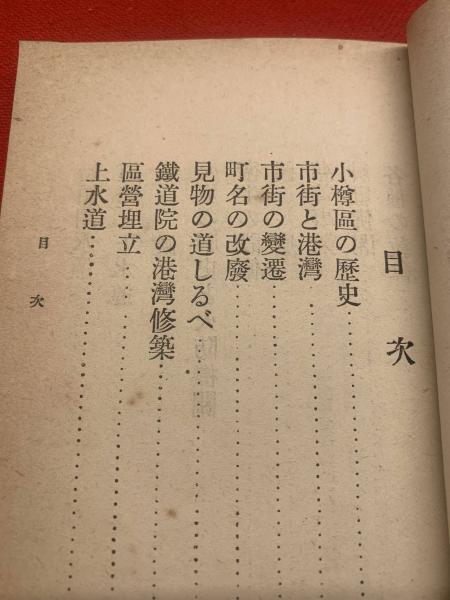 目次
小樽區の歷史
市街と港灣
市街の變遷
町名の改廢
見物の道しるべ
鐵道院の港灣修築
區營埋立
上水道
目次